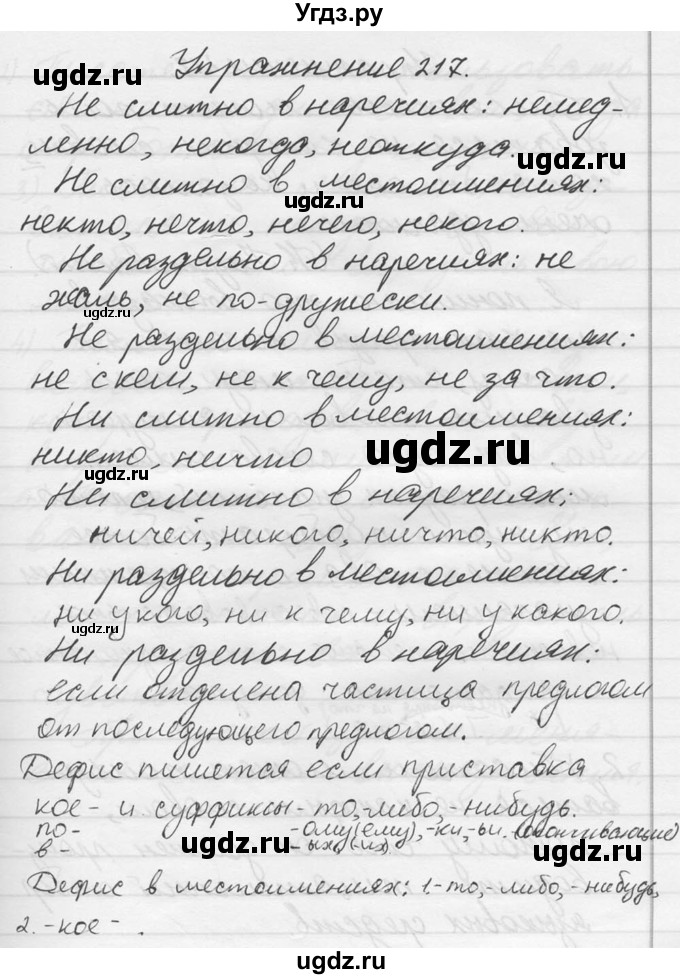 Угдз.ру
Упражнение 217.
ugdz.ru
Не слитно в наречиях: немед-
ugdz.ru
ленно, некогда, неоткуда.
ugdz.ru
Не слитно в местоимениях:
некто, нечто, нечего, некого.
Не раздельно в наречиях: не
жаль, не по-дружески.
ugdz.ru
Не раздельно в местоимениях:
не с кем, не к чему, не за что.
Ни слитно в местоимениях:
никто, ничто
ugdz.ru
ugdz.ru
Ни слитно в наречиях:
ничей, никого, ничто, никто.
Ни раздельно в местоимениях:
ни у кого, ни к чему, ни у какого.
ugdz.ru
Ни раздельно в наречиях:
если отделена частица предлогом
от последующего предлогом.
Дефис пишется если приставка
кое- и суффиксы -то, -либо, -нибудь.
по- -ому(ему), -ки, -ьи.
в- -ых(-их)
ugdz.ru
ugdz.ru
Дефис в местоимениях: 1.-то,-либо,-нибудь,
2. -кое-.
ugdz.ru